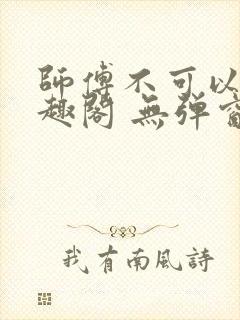 師傅不可以
趣閣 無彈窗
我有南風詩